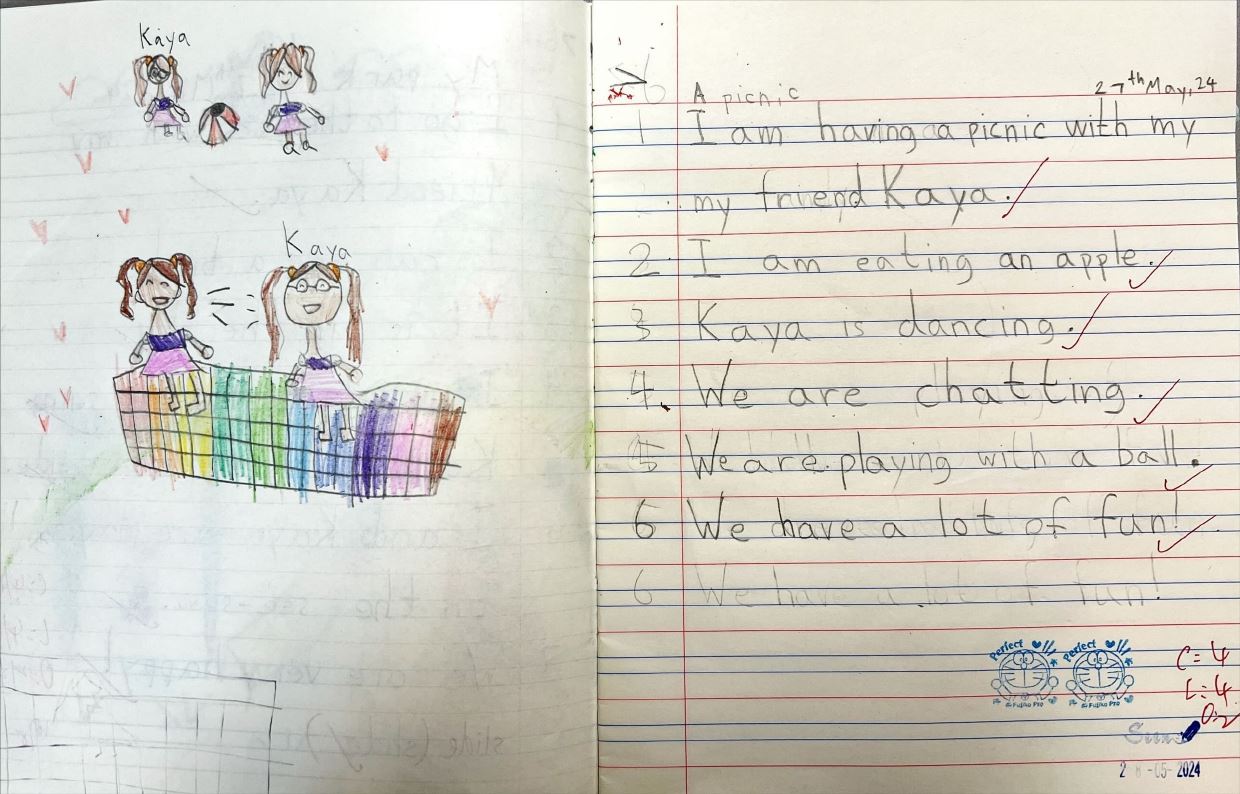 Kaya
Kaya
A picnic
27th May, 24
1 I am having a a picnic with my
my friend Kaya.
2. I am eating an apple.
3 Kaya is dancing.
4. We are chatting.
5 We are playing with a ball.
6 We have a lot of fun!
6 We have a lot of fun!
Perfect Perfect
Fujiko Pro Fujiko Pro
C=4
L=4
O=2
-05-2024